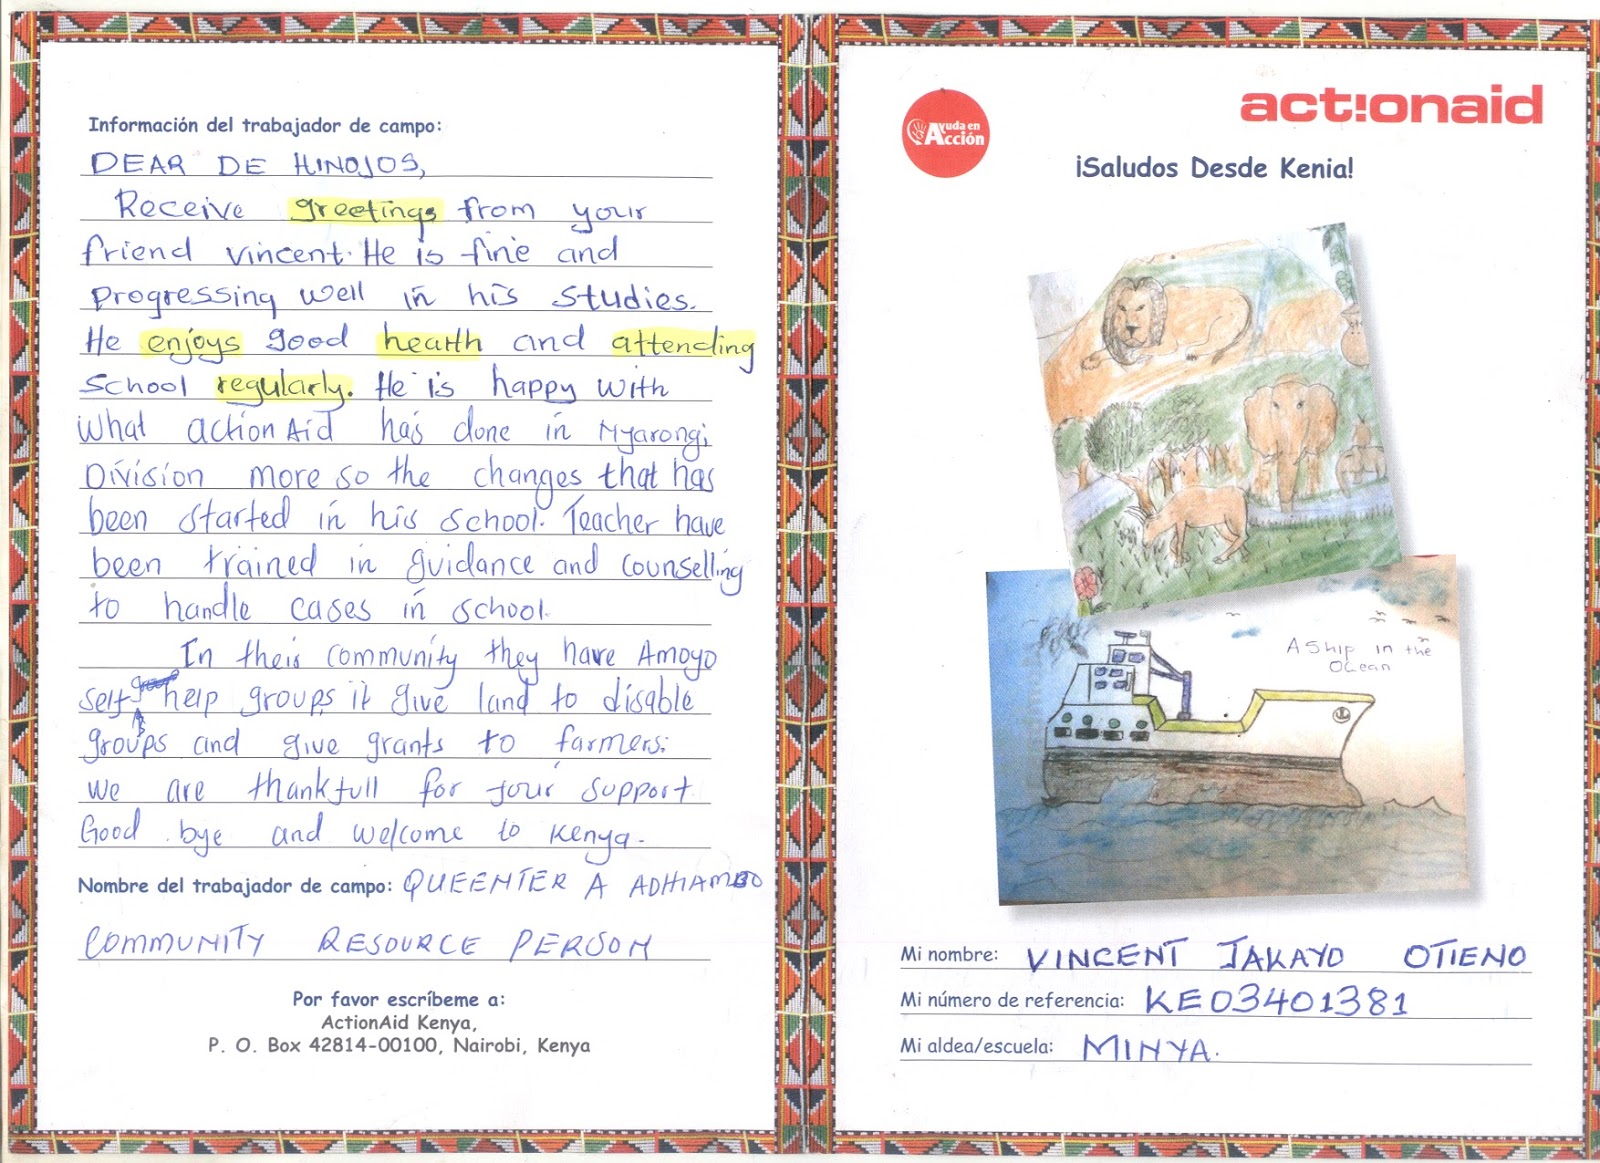 Información del trabajador de campo:
DEAR DE HINOJOS,
Receive greetings from your
friend vincent. He is fine and
progressing well in his studies.
He enjoys good health and attending
school regularly. He is happy with
what actionAid has done in Nyarongi
Division more so the changes that has
been started in his school. Teacher have
been trained in guidance and counselling
to handle cases in school.
In their community they have Amoyo
self help groups it give land to disable
groups and give grants to farmers.
we are thankfull for your support.
Good bye and welcome to Kenya.
Nombre del trabajador de campo: QUEENTER A ADHIAMBO
COMMUNITY RESOURCE PERSON
Por favor escríbeme a:
ActionAid Kenya,
P. O. Box 42814-00100, Nairobi, Kenya
Ayuda en
Acción
act!onaid
¡Saludos Desde Kenia!
A Ship in the
Ocean
Mi nombre: VINCENT JAKAYO OTIENO
Mi número de referencia: KE03401381
Mi aldea/escuela: MINYA.